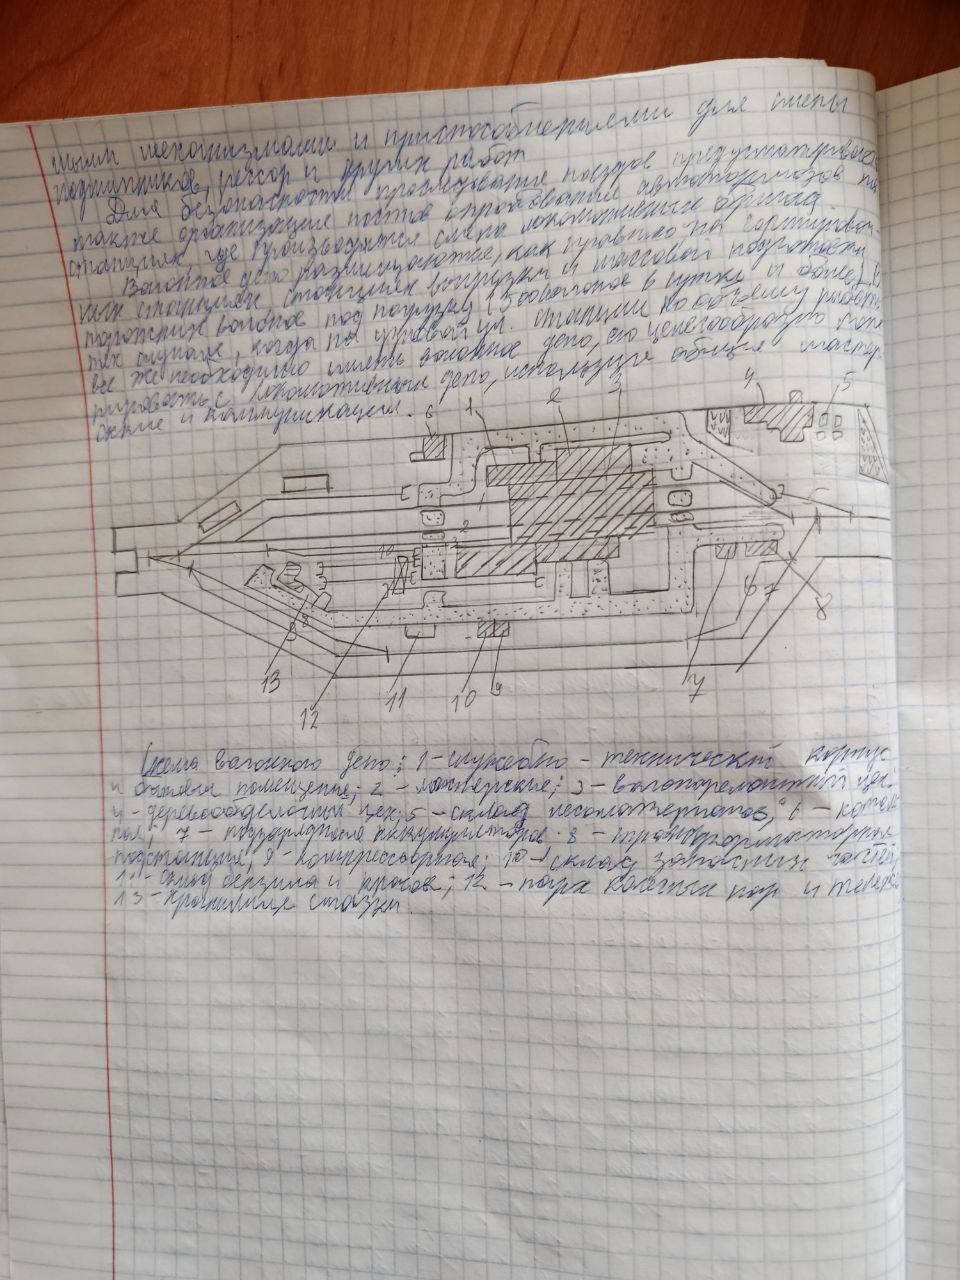 ными механизмами и приспособлениями для смены
подшипников, рессор и других работ
Для безопасности проследования поездов предусматривается
также организация постов опробования автотормозов на
станциях, где производится смена локомотивных бригад.
Вагонное депо размещаются, как правило на сортировоч-
ных станциях, станциях выгрузки и массовой подготовки
порожних вагонов под погрузку (500 вагонов в сутки и более). В
тех случаях, когда на ст. по объему работы
все же необходимо иметь вагонное депо, его целесообразно
с локомотивным депо, используя общие мастер-
ские и коммуникации.
6 1 2 3 4 5
1
2
10
8
6 7
13 12 11 10 9 7 8
Схема вагонного депо: 1 - служебно - технический корпус
и бытовые помещения; 2 - мастерские; 3 - вагоноремонтный цех;
4 - деревообделочный цех; 5 - склад лесоматериалов; 6 -
7 - аккумуляторов 8 - трансформаторная
подстанция; 9 - компрессорная; 10 - склад запасных частей
11 - склад и; 12 - парк колесных пар и тележек
13 - хранилище смазки.